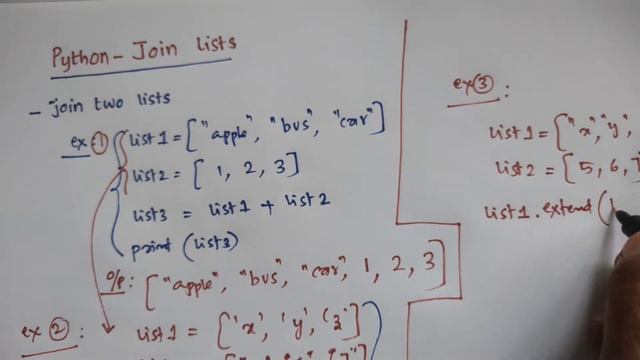 Python - Join lists
- Join two lists
ex:①
list1 = ["apple", "bus", "car"]
list2 = [1, 2, 3]
list3 = list1 + list2
print (list3)
O/p: ["apple", "bus", "car", 1, 2, 3]
ex ② : list1 = ['x', 'y', '3']
ex ③ :
list1 = ["x", "y",
list2 = [5, 6, 7
list1.extend (